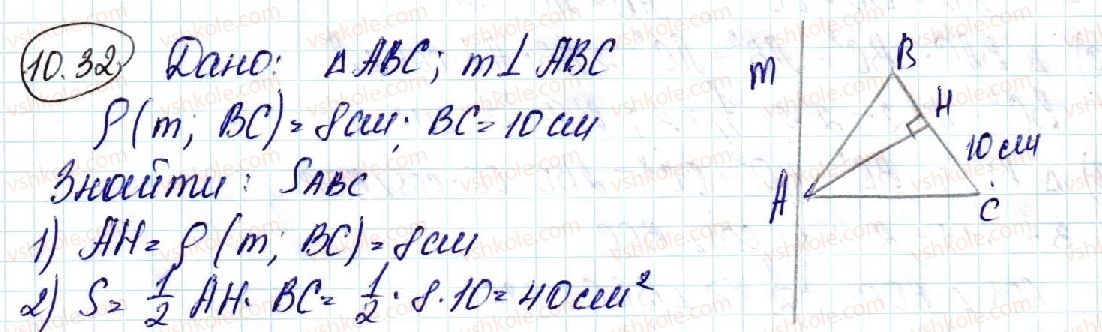 10.32 Дано: △ABC; m⊥ABC
ρ(m; BC)=8см; BC=10см
Знайти: SABC
1) AH=ρ(m; BC)=8см
2) S=1/2 AH·BC=1/2·8·10=40см²
m
B
H
10см
A
C